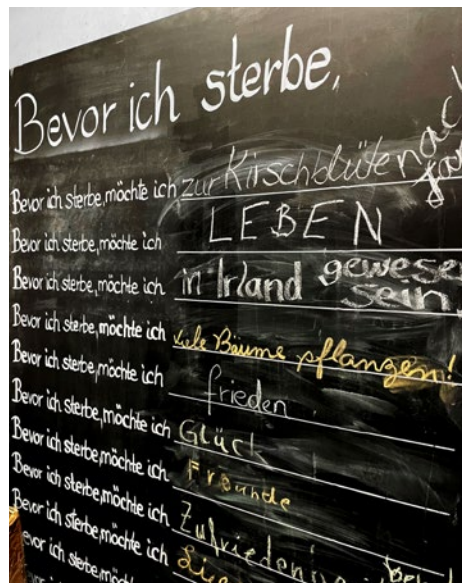 Bevor ich sterbe,
Bevor ich sterbe, möchte ich zur Kirschblüte
Bevor ich sterbe, möchte ich LEBEN
Bevor ich sterbe, möchte ich in Irland gewesen sein
Bevor ich sterbe, möchte ich viele Bäume pflanzen!
Bevor ich sterbe, möchte ich frieden
Bevor ich sterbe, möchte ich Glück
Bevor ich sterbe, möchte ich Freunde
Bevor ich sterbe, möchte ich
Bevor ich sterbe, möchte ich